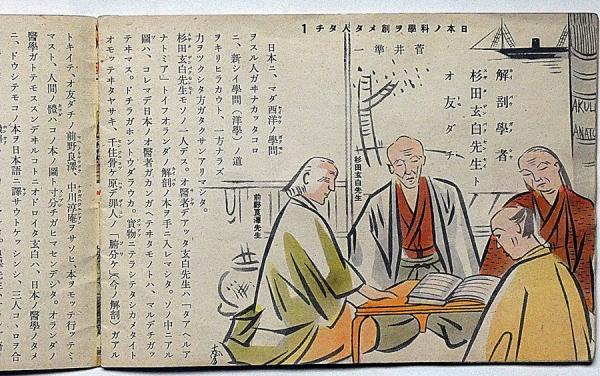 日本ノ科學ヲ創メタ人タチ 1
菅井準一
解剖學者
杉田玄白先生ト
オ友ダチ
AKUL
ANATO
杉田玄白先生
前野良澤先生
日本ニ、マダ西洋ノ學問
ヲスル人ガナカッタコロ
ニ、新シイ學問（洋學）ノ道
ヲキリヒラカウト、一方ナラズ
力ヲツクシタ方ガタクサンアリマシタ。
杉田玄白先生モソノ一人デス。オ醫者デアッタ玄白先生ハ「タアヘルア
ナトミア」トイフオランダノ解剖ノ本ヲ手ニ入レマシタ。ソノ中ニアル
圖ハ、コレマデ日本ノオ醫者ガカンガヘテヰタモノトハ、マルデチガッ
テヰマス。ドチラガホントウダラウカ。實物ニテラシテタシカメタイト
オモッテヰタヤサキ、千住骨ケ原デ罪人ノ「腑分ケ」（今ノ解剖）ガアル
トキイテ、オ友ダチノ前野良澤、中川淳庵ヲサソヒ、本ヲモッテ行ッテミ
マスト、人間ノ體ハコノ本ノ圖ト寸分チガヒマセンデシタ。オランダノ
醫學ガトテモススンデヰルコトニオドロイタ玄白ハ、日本ノ醫學ノタメ
ニ、ドウシテモコノ本ヲ日本語ニ譯サウトケッシンシ、三人コヽロヲ合